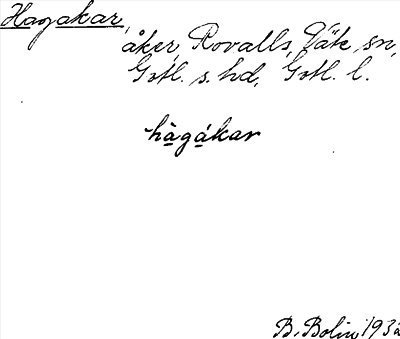 Hagakar,
åker, Rovalls, Väte sn,
Gotl. s. hd, Gotl. l.
hàgákar
B. Bolin 193